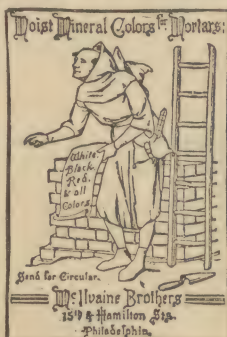 Moist Mineral Colors for Mortars:
White
Black
Red.
& all
Colors
Send for Circular.
McIlvaine Brothers
15th & Hamilton Sts.
Philadelphia.